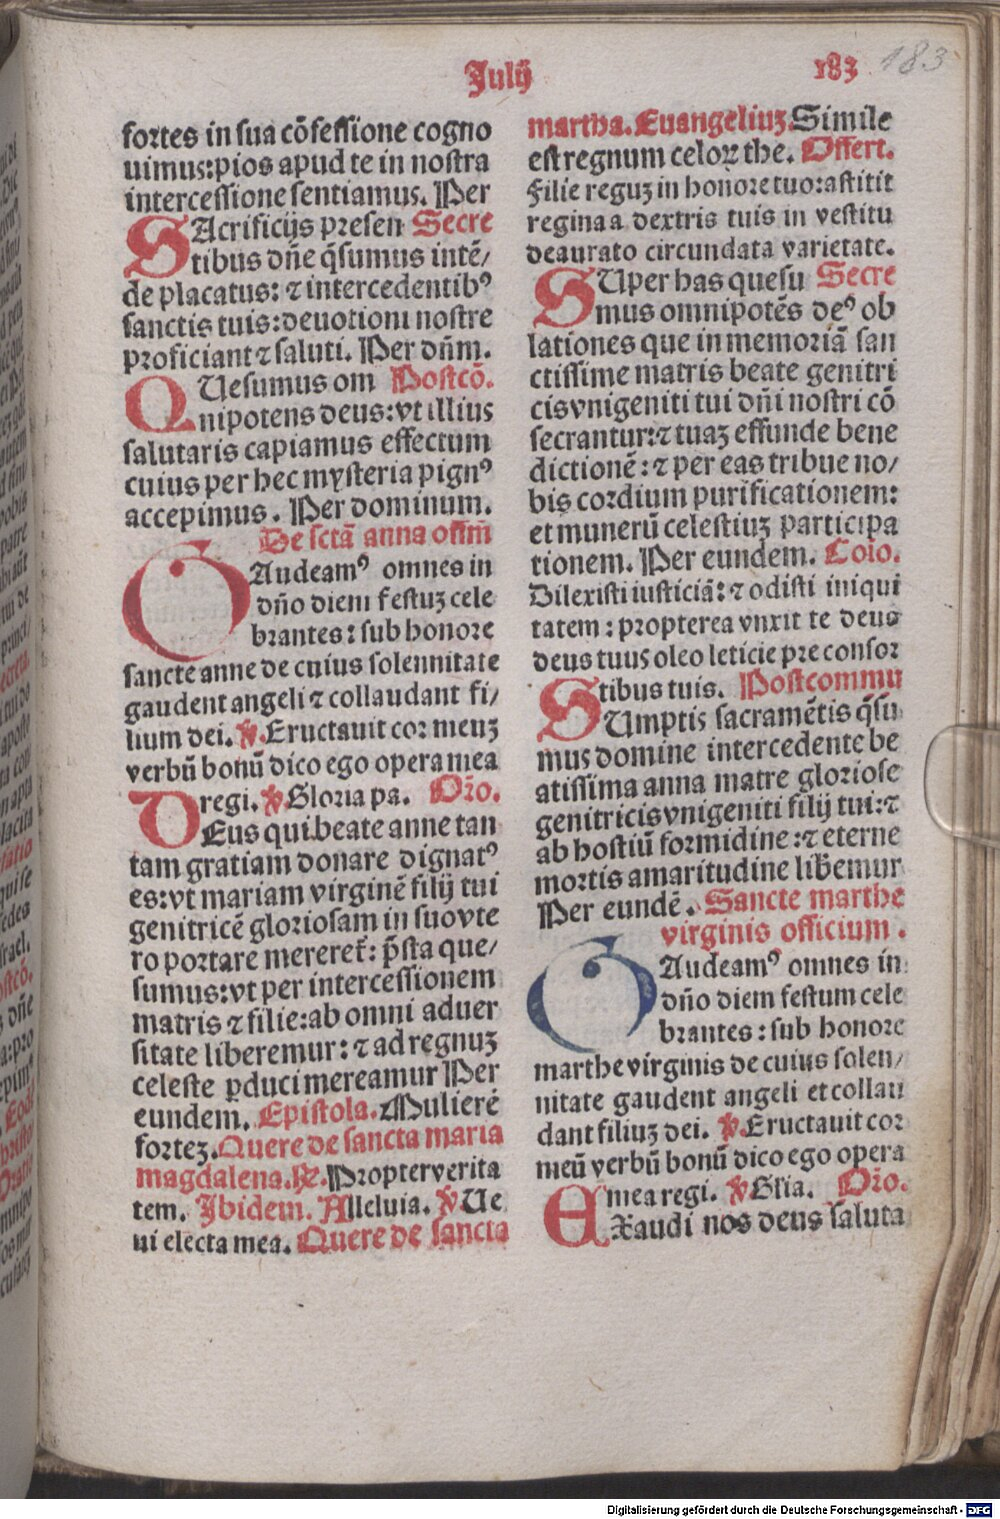 Julij
183
183
fortes in sua cõfessione cogno
uimus:pios apud te in nostra
intercessione sentiamus. Per
SAcrificijs presen Secre
tibus dñe q̃sumus intẽ/
de placatus: ⁊ intercedentibꝰ
sanctis tuis:deuotioni nostre
proficiant ⁊ saluti. Per dñm.
QUesumus om Postcõ.
nipotens deus:vt illius
salutaris capiamus effectum
cuius per hec mysteria pignꝰ
accepimus. Per dominum.
De sctã anna offm̃
GAudeamꝰ omnes in
dño diem festuꝫ cele
brantes: sub honore
sancte anne de cuius solennitate
gaudent angeli ⁊ collaudant fi/
lium dei. ℣. Eructauit cor meuꝫ
verbũ bonũ dico ego opera mea
regi. ℣. Gloria pa. Oĩo.
DEus qui beate anne tan
tam gratiam donare dignatꝰ
es:vt mariam virginẽ filij tui
genitricẽ gloriosam in suo vte
ro portare mereret̃: p̃sta que/
sumus:vt per intercessionem
matris ⁊ filie:ab omni aduer
sitate liberemur: ⁊ ad regnuꝫ
celeste ꝓduci mereamur Per
eundem. Epistola. Mulierẽ
forteꝫ. Quere de sancta maria
magdalena. ℟. Propter verita
tem. Ibidem. Alleluia. ℣ Ue
ni electa mea. Quere de sancta
martha. Euangeliuꝫ. Simile
est regnum celoꝝ the. Offert.
Filie reguꝫ in honore tuo:astitit
regina a dextris tuis in vestitu
deaurato circundata varietate.
SUper has quesu Secre
mus omnipotẽs deꝰ ob
lationes que in memoriã san
ctissime matris beate genitri
cis vnigeniti tui dñi nostri cõ
secrantur:⁊ tuaꝫ effunde bene
dictionẽ: ⁊ per eas tribue no/
bis cordium purificationem:
et munerũ celestiuꝫ participa
tionem. Per eundem. Coĩo.
Dilexisti iusticiã: ⁊ odisti iniqui
tatem: propterea vnxit te deus
deus tuus oleo leticie pre consor
tibus tuis. Postcommu
SUmptis sacramẽtis q̃su
mus domine intercedente be
atissima anna matre gloriose
genitricis vnigeniti filij tui:⁊
ab hostiũ formidine:⁊ eterne
mortis amaritudine lib̃emur
Per eundẽ. Sancte marthe
virginis officium.
GAudeamꝰ omnes in
dño diem festum cele
brantes: sub honore
marthe virginis de cuius solen/
nitate gaudent angeli et collau
dant filiuꝫ dei. ℣. Eructauit cor
meũ verbũ bonũ dico ego opera
mea regi. ℣ Glia. Oĩo.
EXaudi nos deus saluta
Digitalisierung gefördert durch die Deutsche Forschungsgemeinschaft - DFG